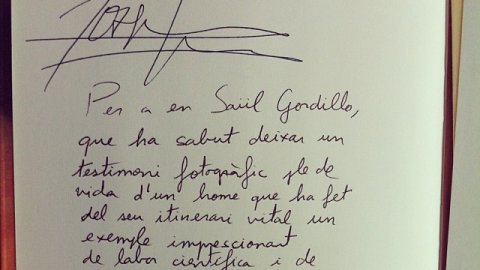 Per a en Saül Gordillo,
que ha sabut deixar un
testimoni fotogràfic ple de
vida d'un home que ha fet
del seu itinerari vital un
exemple impressionant
de labor científica i de